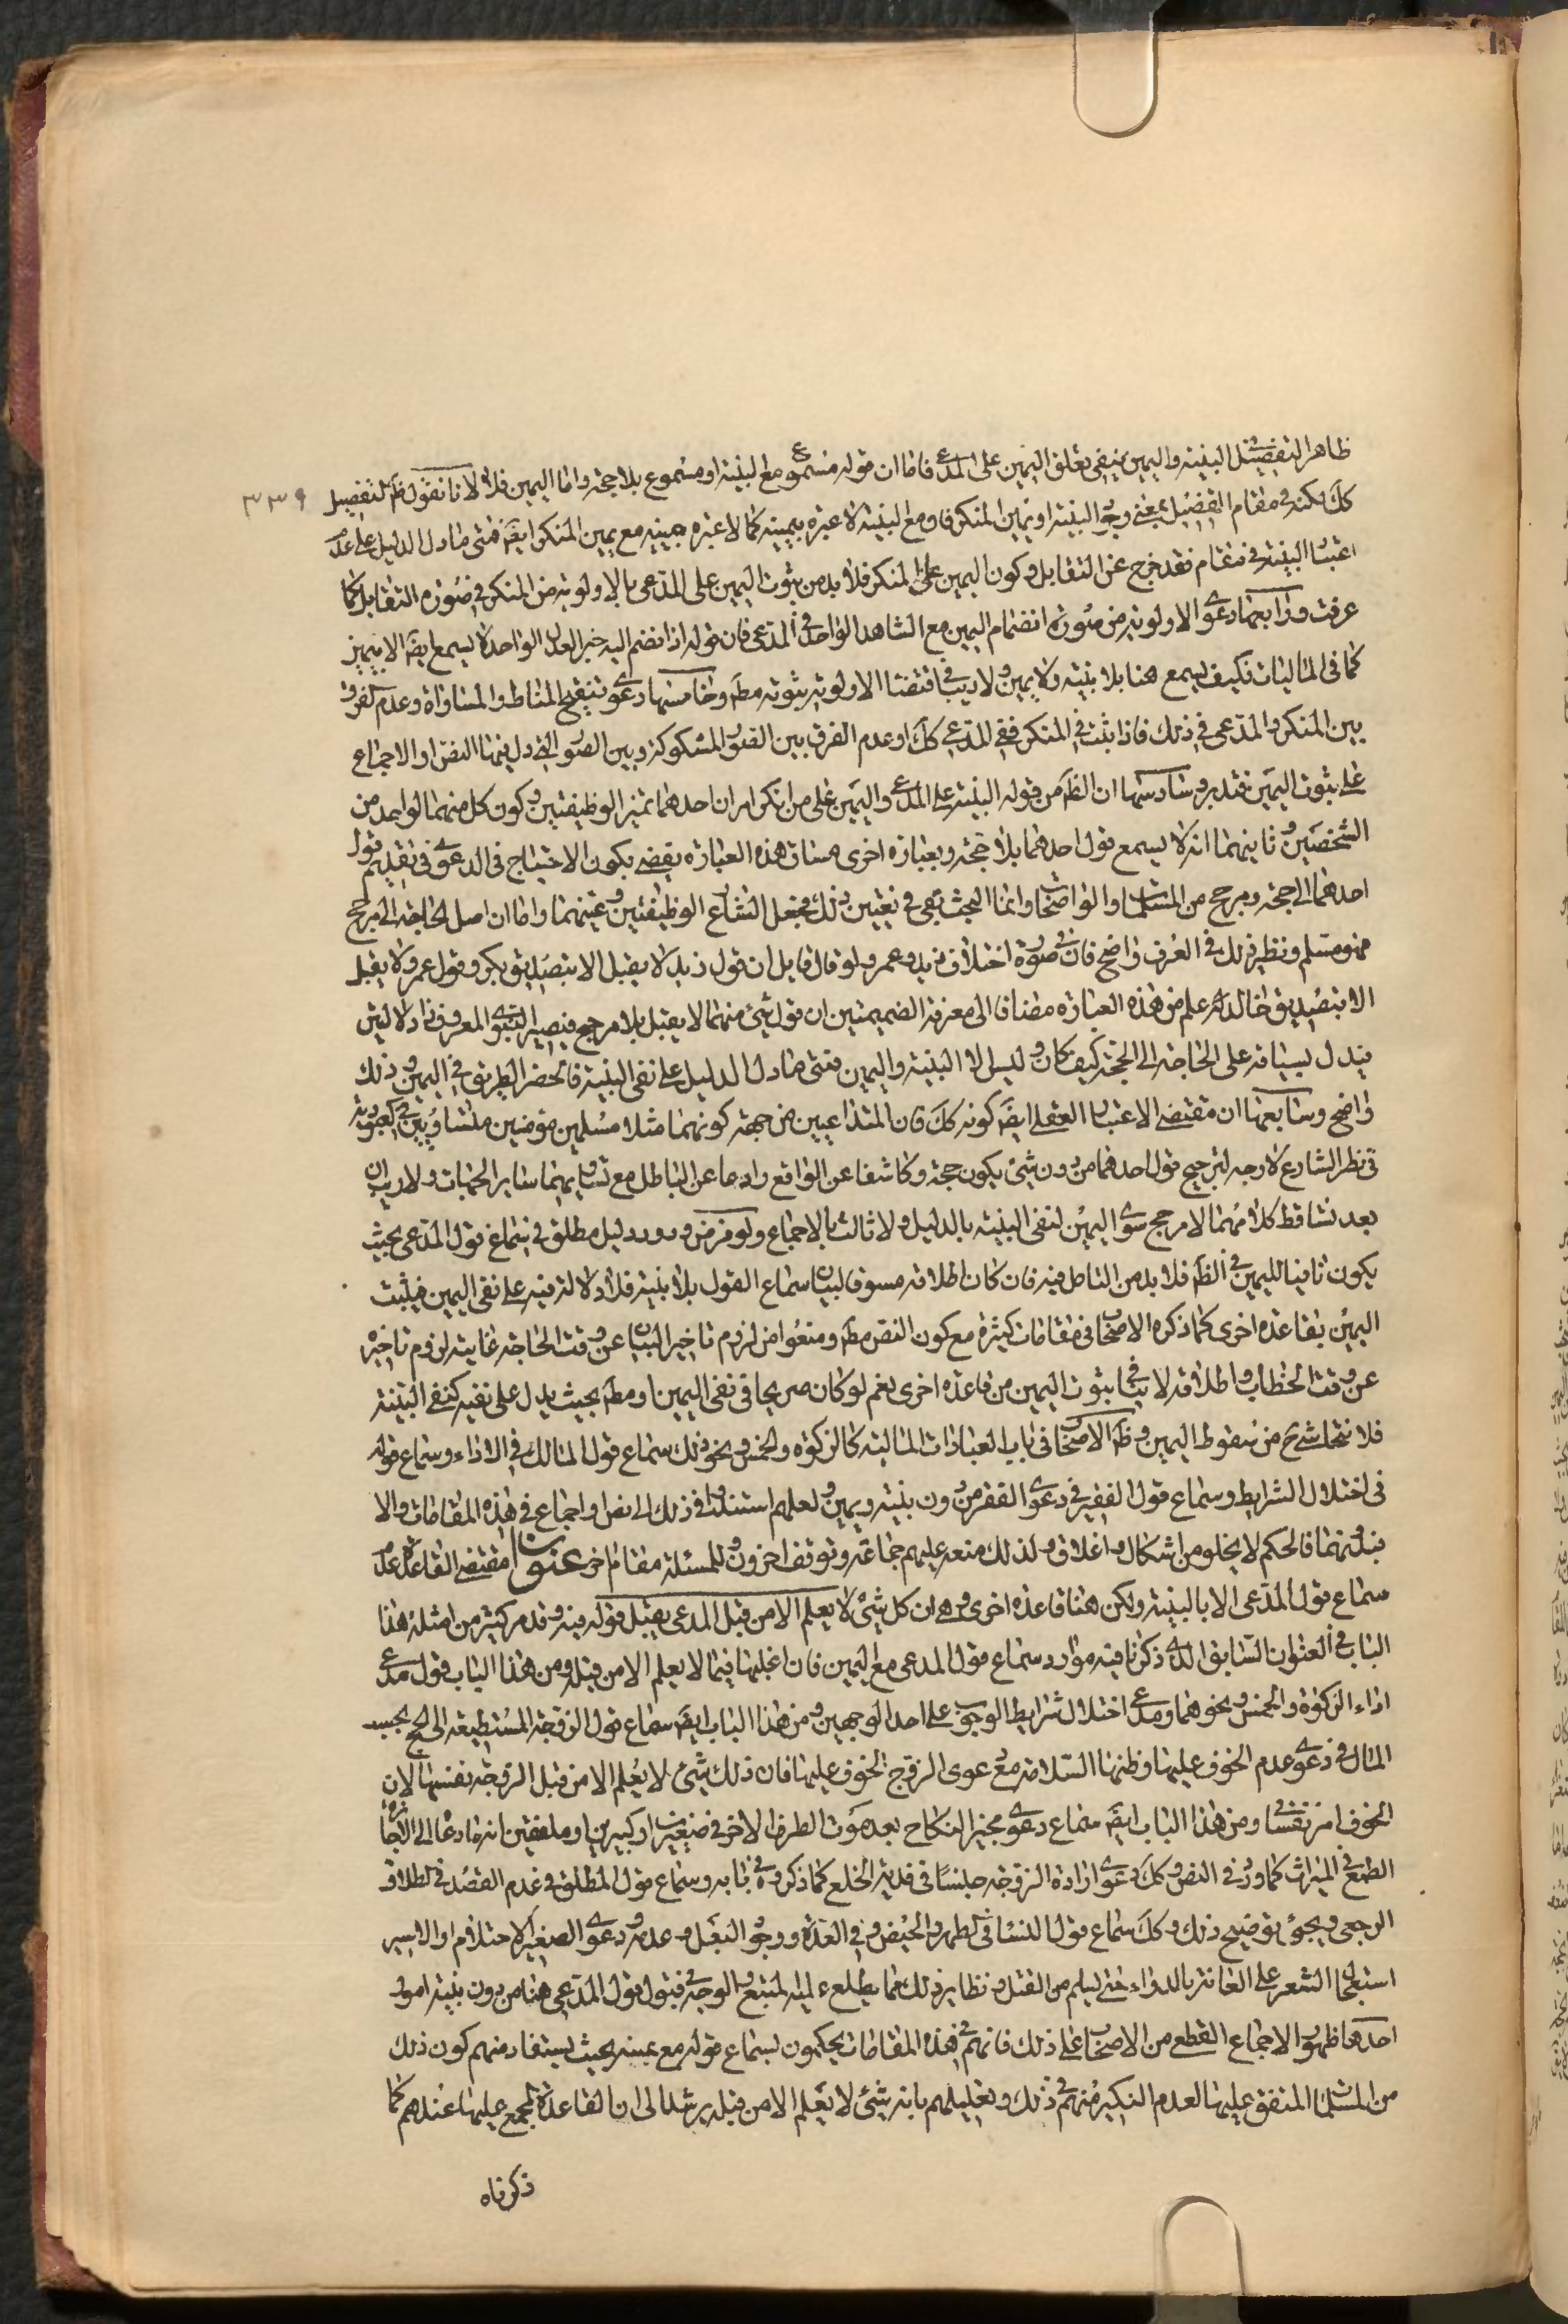 ظاهر التفصيل في البينة واليمين ينفي تعلق اليمين على المدعي فاما ان قوله مسموع مع البينة او مسموع بلا حجة واما اليمين فلا لانا نقول ظ التفصيل
٣٣٩
كك لكنه في مقام التفصيل بمعنى وجود البينة او يمين المنكر فاومع البينة لا عبرة بيمينه كما لا عبرة ببينة مع يمين المنكر ايضا فمتى ما دل الدليل على عدم
اعتبار البينة في مقام فقد خرج عن التقابل وكون اليمين على المنكر فلا بد من ثبوت اليمين على المدعي بالاولوية من المنكر في صورة التقابل كما
عرفت ورابعها دعوى الاولوية من صورة انضمام اليمين مع الشاهد الواحد في المدعي فان قوله اذا انضم اليه خبر العدل الواحد لا يسمع ايضا الا بيمين
كما في الماليات فكيف يسمع هنا بلا بينة ولا يمين ولا ريب في اقتضاء الاولوية ثبوته مط وخامسها دعوى تنقيح المناط والمساواة وعدم الفرق
بين المنكر والمدعي في ذلك فاذا ثبت في المنكر ففي المدعي كك او عدم الفرق بين الصور المشكوكة وبين الصور التي دل فيها النص او الاجماع
على ثبوت اليمين فتدبر وسادسها ان الظ من قوله البينة على المدعي واليمين على من انكر امران احدهما تميز الوظيفتين وكون كل منهما لواحد من
الشخصين وثانيهما انه لا يسمع قول احدهما بلا حجة وبعبارة اخرى مساق هذه العبارة يقضي بكون الاحتياج في الدعوى في تقديم قول
احدهما الى حجة ومرجح من المسلمات والواضحات وانما البحث بقي في تعيين ذلك فجعل الشارع الوظيفتين وعينهما واما ان اصل الحاجة الى مرجح
فهو مسلم ونظير ذلك في العرف واضح فان في صورة اختلاف زيد وعمرو لو قال قايل ان قول زيد لا يقبل الا بتصديق بكر وقول عمرو لا يقبل
الا بتصديق خالد علم من هذه العبارة مضافا الى معرفة الضميمتين ان قول شيء منهما لا يقبل بلا مرجح فيصير النبوي المعروف ذا دلالتين
فيدل بسياقه على الحاجة الى الحجة كيف كان وليس الا البينة واليمين فمتى ما دل الدليل على نفي البينة فانحصر الطريق في اليمين وذلك
واضح وسابعها ان مقتضى الاعتبار العقلي ايضا كونه كك فان المتداعيين من جهة كونهما مثلا مسلمين مؤمنين متساويين في العبودية
في نظر الشارع لا وجه لترجيح قول احدهما من دون شيء يكون حجة وكاشفا عن الواقع رادعا عن الباطل مع تساويهما ساير الجهات ولا ريب ان
بعد تساقط كلامهما لا مرجح سوى اليمين لنفي البينة بالدليل ولا ثالث بالاجماع ولو فرض ورود دليل مطلق في سماع قول المدعي بحيث
يكون نافيا لليمين في الظ فلا بد من التامل فيه فان كان اطلاقه مسوقا لبيان سماع القول بلا بينة فلا دلالة فيه على نفي اليمين فيثبت
اليمين بقاعدة اخرى كما ذكره الاصحاب في مقامات كثيرة مع كون النص مط ومنعوا من لزوم تاخير البيان عن وقت الحاجة غايته لزوم تاخيره
عن وقت الخطاب واطلاقه لا ينافي ثبوت اليمين من قاعدة اخرى نعم لو كان صريحا في نفي اليمين او مط بحيث يدل على نفيه كنفي البينة
فلا نتحاشى ح من سقوط اليمين وظ الاصحاب في باب العبادات المالية كالزكوة والخمس ونحو ذلك سماع قول المالك في الاداء وسماع قوله
في اختلال الشرايط وسماع قول الفقير في دعوى الفقر من دون بينة ويمين ولعلهم استندوا في ذلك الى نص او اجماع في هذه المقامات والا
فبدونهما فالحكم لا يخلو من اشكال واغلاق ولذلك منعه عليهم جماعة وتوقف اخرون وللمسئلة مقام اخر عنوان مقتضى القاعدة عدم
سماع قول المدعي الا بالبينة ولكن هنا قاعدة اخرى وهي ان كل شيء لا يعلم الا من قبل المدعي يقبل قوله فيه وقد مر كثير من امثلة هذا
الباب في العنوان السابق الذي ذكرنا فيه موارد سماع قول المدعي مع اليمين فان اغلبها فيما لا يعلم الا من قبله ومن هذا الباب قول مدعي
اداء الزكوة والخمس ونحوهما ومدعي اختلال شرايط الوجوب على احد الوجهين ومن هذا الباب ايضا سماع قول الزوجة المستطيعة الى الحج بحسب
المال في دعوى عدم الخوف عليها وظنها السلامة مع دعوى الزوج الخوف عليها فان ذلك شيء لا يعلم الا من قبل الزوجة نفسها لان
الخوف امر نفساني ومن هذا الباب ايضا سماع دعوى مجيز النكاح بعد موت الطرف الاخر في صغيرين او كبيرين او ملفقين انه ما دعاه الى الاجازة
الطمع في الميراث كما ورد في النص وكك دعوى ارادة الزوجة جنسا في فدية الخلع كما ذكروه في بابه وسماع قول المطلق في عدم القصد في الطلاق
الرجعي ويجيء توضيح ذلك وكك سماع قول النساء في الطهر والحيض وفي العدة ووجود البعل وعدمه ودعوى الصغير الاحتلام او الاسير
استعجال الشعر على العانة بالدواء حتى يسلم من القتل ونظاير ذلك مما يطلع عليه المتتبع والوجه في قبول قول المدعي هنا من دون بينة امور
احدها ظهور الاجماع القطعي من الاصحاب على ذلك فانهم في هذه المقامات يحكمون بسماع قوله مع يمينه بحيث يستفاد منهم كون ذلك
من المسلمات المتفق عليها لعدم النكير منهم في ذلك وتعليلهم بانه شيء لا يعلم الا من قبله يرشد الى ان القاعدة مجمع عليها عندهم كما
ذكرناه